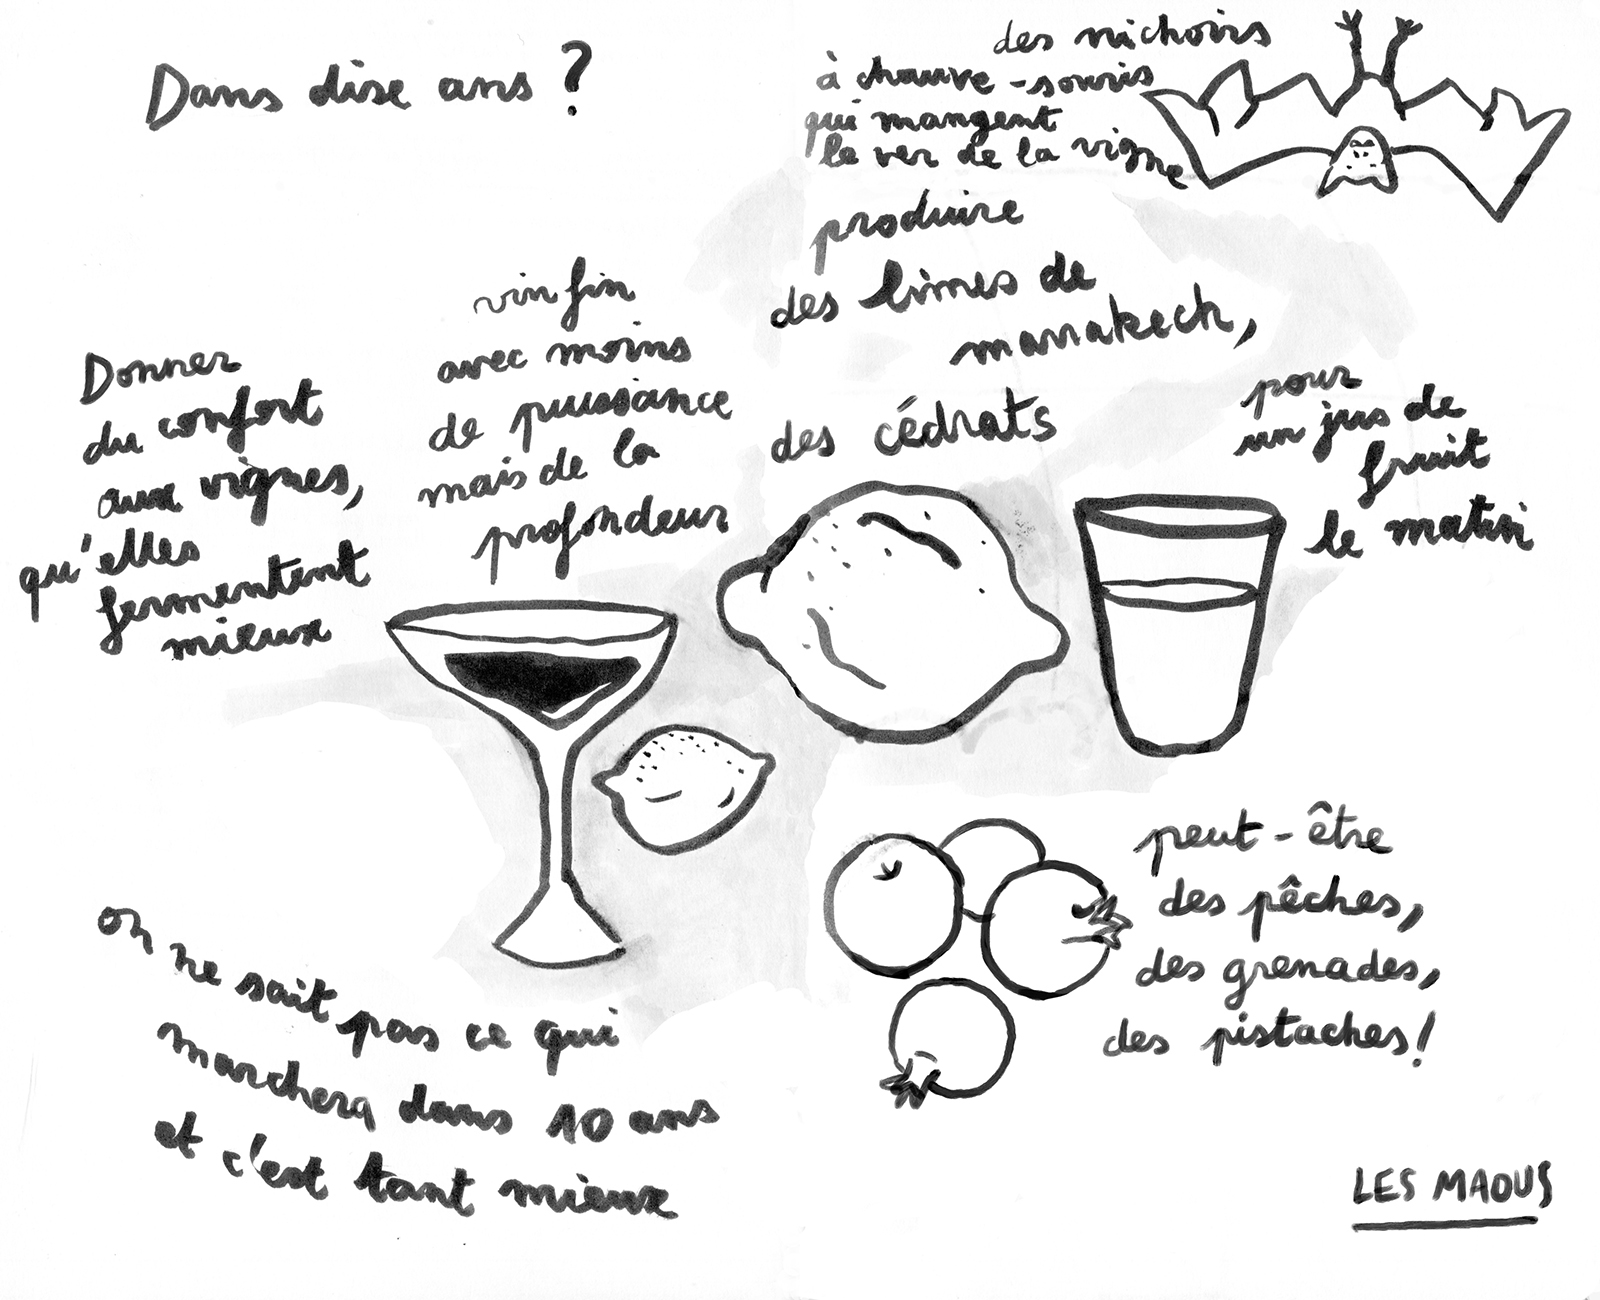 Dans dixe ans ?
des nichoirs
à chauve-souris
qui mangent
le ver de la vigne
produire
des limes de
marrakech,
des cédrats
pour
un jus de
fruit
le matin
vin fin
avec moins
de puissance
mais de la
profondeur
Donner
du confort
aux vignes,
qu'elles
fermentent
mieux
peut-être
des pêches,
des grenades,
des pistaches!
on ne sait pas ce qui
marchera dans 10 ans
et c'est tant mieux
LES MAOUS